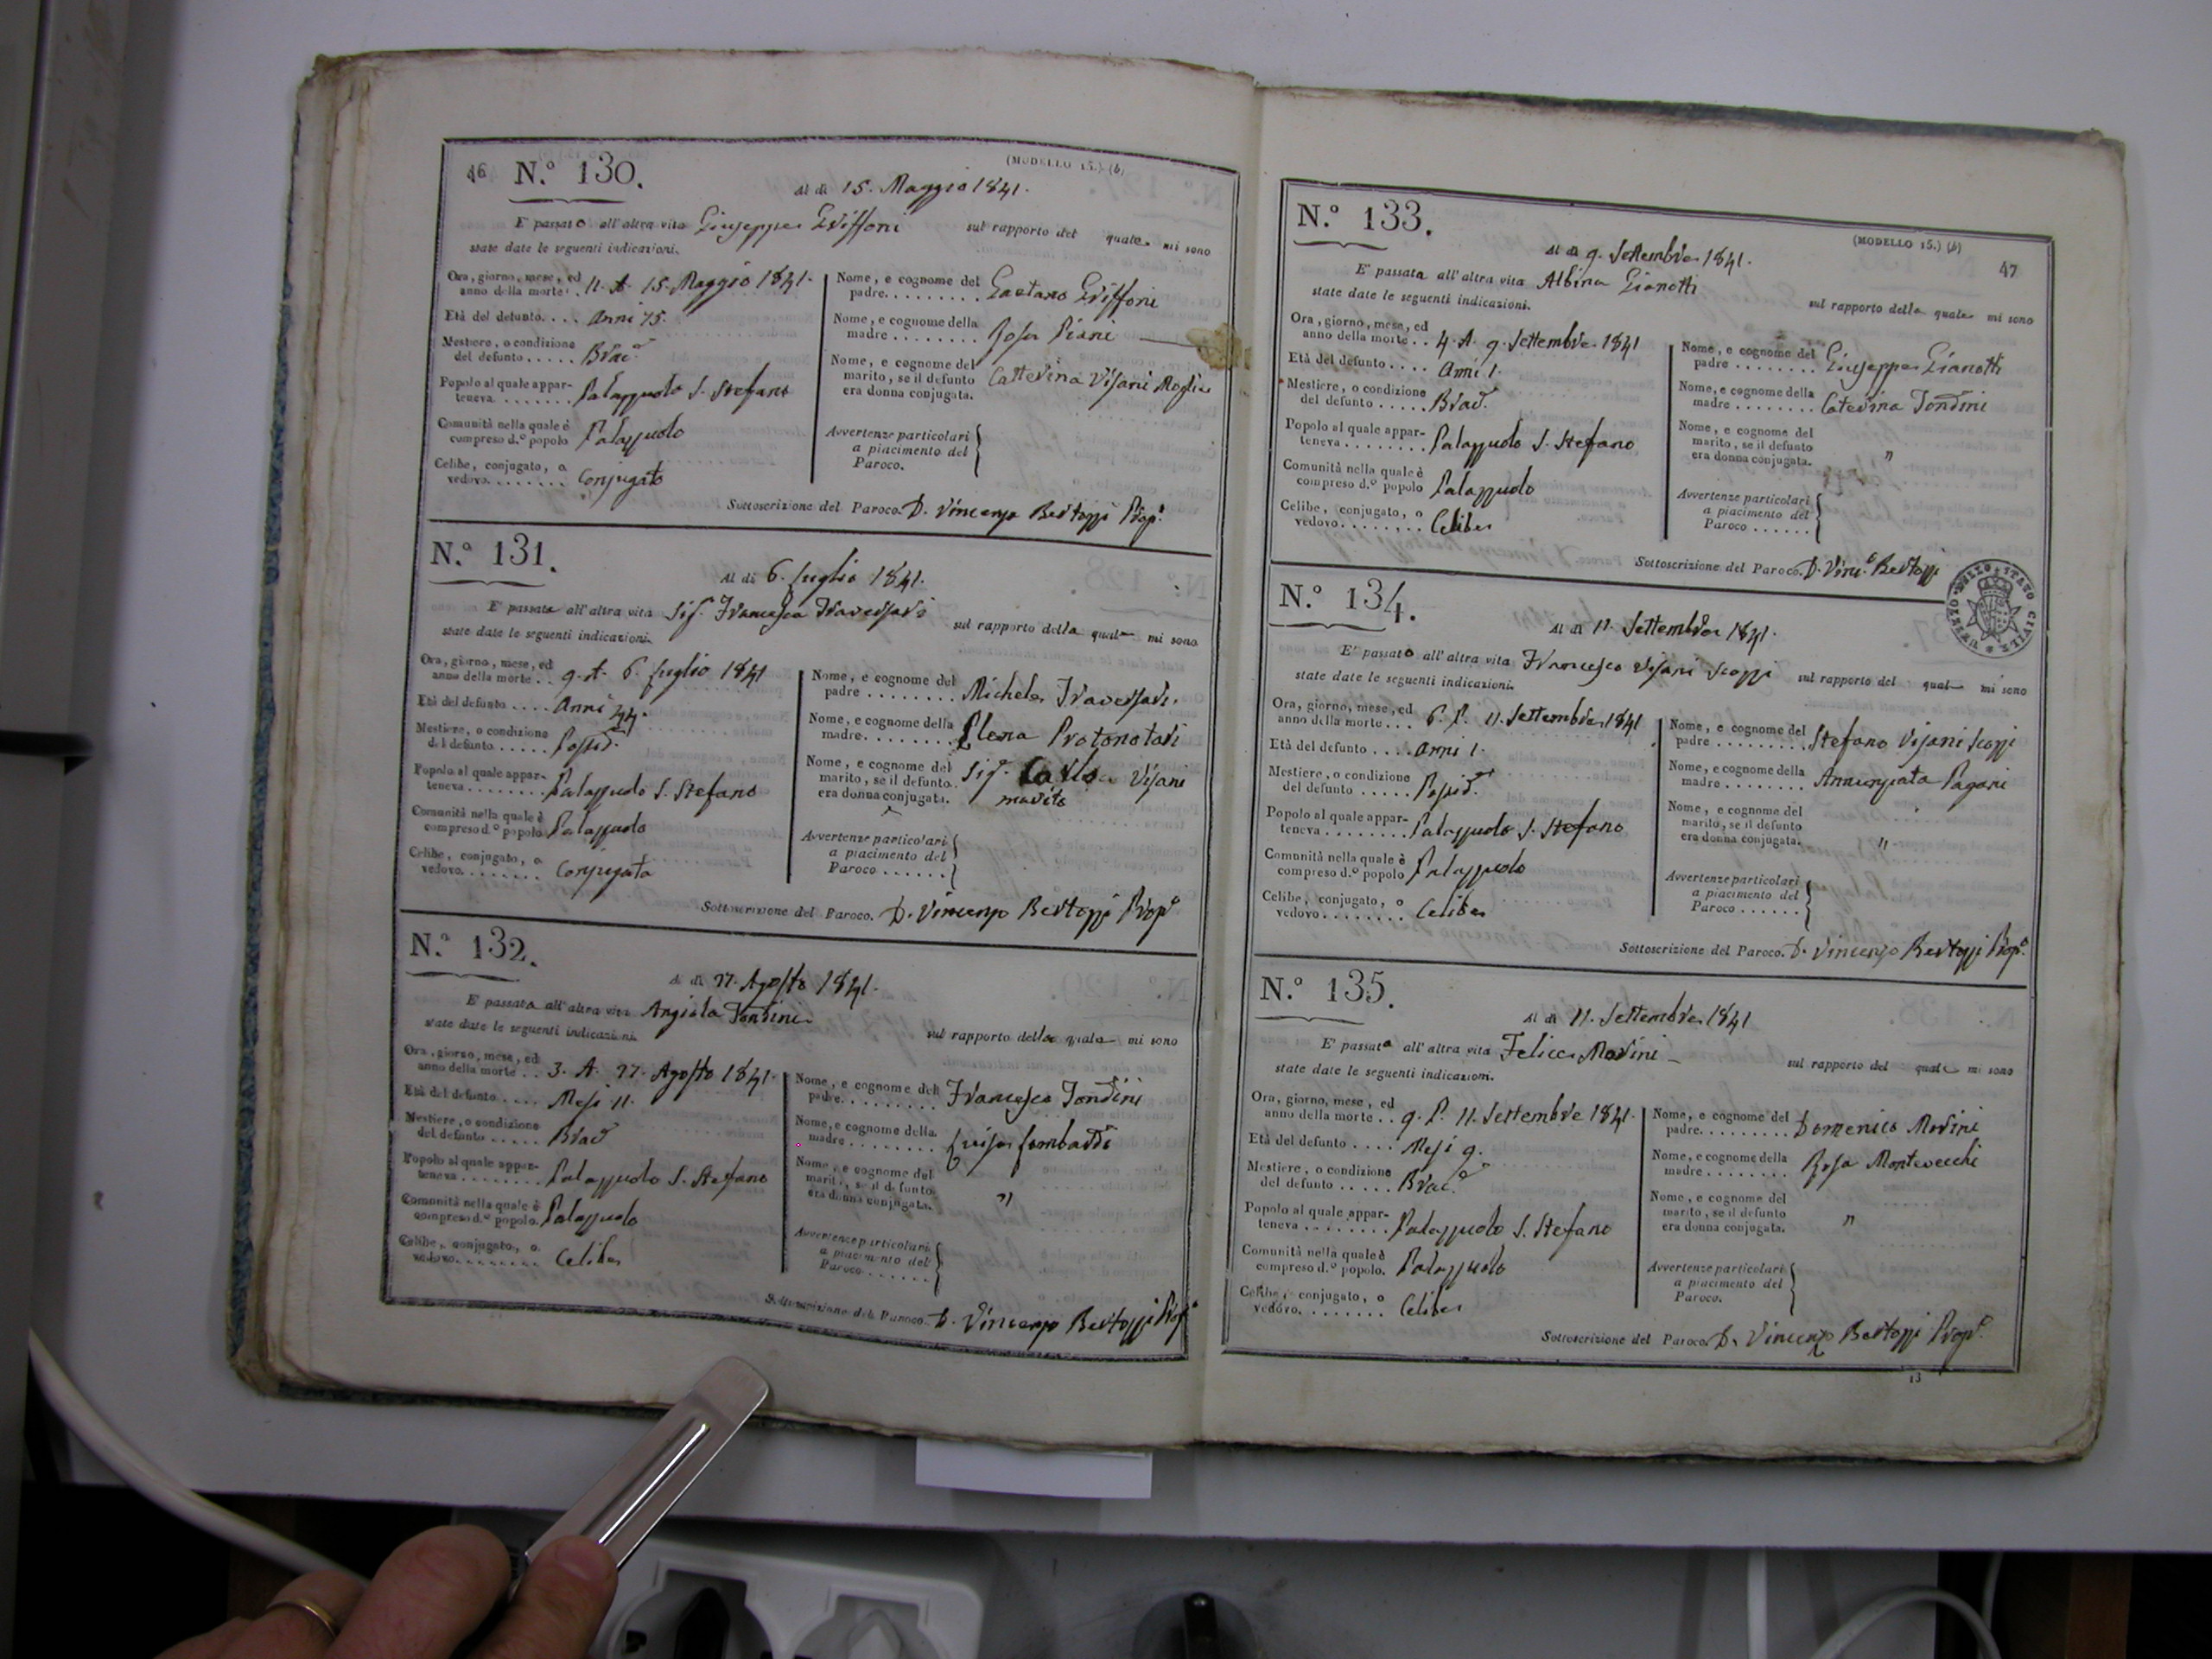 46
N.º 130.
(MODELLO 15.) (b)
Al dì 15. Maggio 1841.
E' passato all'altra vita Giuseppe Griffoni sul rapporto del quale mi sono
state date le seguenti indicazioni.
Ora, giorno, mese, ed
anno della morte. 11. A. 15. Maggio 1841.
Età del defunto.... Anni 75.
Mestiere, o condizione
del defunto ..... Brac.e
Popolo al quale appar-
teneva ....... Palazzuolo S. Stefano
Comunità nella quale è
compreso d.º popolo Palazzuolo
Celibe, conjugato, o
vedovo........ Conjugato
Nome, e cognome del
padre......... Gaetano Griffoni
Nome, e cognome della
madre ........ Rosa Piani
Nome, e cognome del
marito, se il defunto
era donna conjugata. Catterina Visani Moglie
Avvertenze particolari
a piacimento del
Paroco.
Sottoscrizione del Paroco. D. Vincenzo Bertozzi Prop.o
N.º 131.
Al dì 6. Luglio 1841.
E' passata all'altra vita Sig. Francesca Traversari
sul rapporto della quale mi sono
state date le seguenti indicazioni.
Ora, giorno, mese, ed
anno della morte .. 9. A. 6. Luglio 1841
Età del defunto .... Anni 44.
Mestiere, o condizione
del defunto ..... Possid.
Popolo al quale appar-
teneva ........ Palazzuolo S. Stefano
Comunità nella quale è
compreso d.º popolo Palazzuolo
Celibe, conjugato, o
vedovo........ Conjugata
Nome, e cognome del
padre ........ Michele Traversari.
Nome, e cognome della
madre......... Elena Protonotari
Nome, e cognome del
marito, se il defunto
era donna conjugata. Sig. Carlo Visani
marito
Avvertenze particolari
a piacimento del
Paroco ......
Sottoscrizione del Paroco. D. Vincenzo Bertozzi Prop.o
N.º 132.
Al dì 27. Agosto 1841.
E' passata all'altra vita Angiola Tondini
sul rapporto della quale mi sono
state date le seguenti indicazioni.
Ora, giorno, mese, ed
anno della morte .. 3. A. 27. Agosto 1841.
Età del defunto .... Mesi 11.
Mestiere, o condizione
del defunto ..... Brac.
Popolo al quale appar-
teneva ........ Palazzuolo S. Stefano
Comunità nella quale è
compreso d.º popolo. Palazzuolo
Celibe, conjugato, o
vedovo........ Celibe
Nome, e cognome del
padre......... Francesco Tondini
Nome, e cognome della
madre ....... Luisa Lombardi
Nome, e cognome del
marito, se il defunto
era donna conjugata. "
Avvertenze particolari
a piacimento del
Paroco ......
Sottoscrizione del Paroco. D. Vincenzo Bertozzi Prop.o
N.º 133.
(MODELLO 15.) (b)
47
Al dì 9. Settembre 1841.
E' passata all'altra vita Albina Gianotti
sul rapporto della quale mi sono
state date le seguenti indicazioni.
Ora, giorno, mese, ed
anno della morte .. 4. A. 9. Settembre 1841
Età del defunto .... Anni 1.
Mestiere, o condizione
del defunto ..... Brac.
Popolo al quale appar-
teneva ........ Palazzuolo S. Stefano
Comunità nella quale è
compreso d.º popolo Palazzuolo
Celibe, conjugato, o
vedovo........ Celibe
Nome, e cognome del
padre ........ Giuseppe Gianotti
Nome, e cognome della
madre ........ Caterina Tondini
Nome, e cognome del
marito, se il defunto
era donna conjugata. "
Avvertenze particolari
a piacimento del
Paroco ......
Sottoscrizione del Paroco. D. Vinc.o Bertozzi
STATO CIVILE
N.º 134.
Al dì 11. Settembre 1841.
E' passato all'altra vita Francesco Visani Scozzi sul rapporto del quale mi sono
state date le seguenti indicazioni.
Ora, giorno, mese, ed
anno della morte ... 6. P. 11. Settembre 1841
Età del defunto .... Anni 1.
Mestiere, o condizione
del defunto ..... Possid.
Popolo al quale appar-
teneva ........ Palazzuolo S. Stefano
Comunità nella quale è
compreso d.º popolo Palazzuolo
Celibe, conjugato, o
vedovo........ Celibe
Nome, e cognome del
padre ......... Stefano Visani Scozzi
Nome, e cognome della
madre ........ Annunziata Pagani
Nome, e cognome del
marito, se il defunto
era donna conjugata. "
Avvertenze particolari
a piacimento del
Paroco ......
Sottoscrizione del Paroco. D. Vincenzo Bertozzi Prop.o
N.º 135.
Al dì 11. Settembre 1841
E' passata all'altra vita Felice Modini
sul rapporto del quale mi sono
state date le seguenti indicazioni.
Ora, giorno, mese, ed
anno della morte .. 9. P. 11. Settembre 1841.
Età del defunto .... Mesi 9.
Mestiere, o condizione
del defunto ..... Brac.e
Popolo al quale appar-
teneva ........ Palazzuolo S. Stefano
Comunità nella quale è
compreso d.º popolo. Palazzuolo
Celibe, conjugato, o
vedovo........ Celibe
Nome, e cognome del
padre......... Domenico Modini
Nome, e cognome della
madre ....... Rosa Montevecchi
Nome, e cognome del
marito, se il defunto
era donna conjugata. "
Avvertenze particolari
a piacimento del
Paroco.
Sottoscrizione del Paroco. D. Vincenzo Bertozzi Prop.o
13